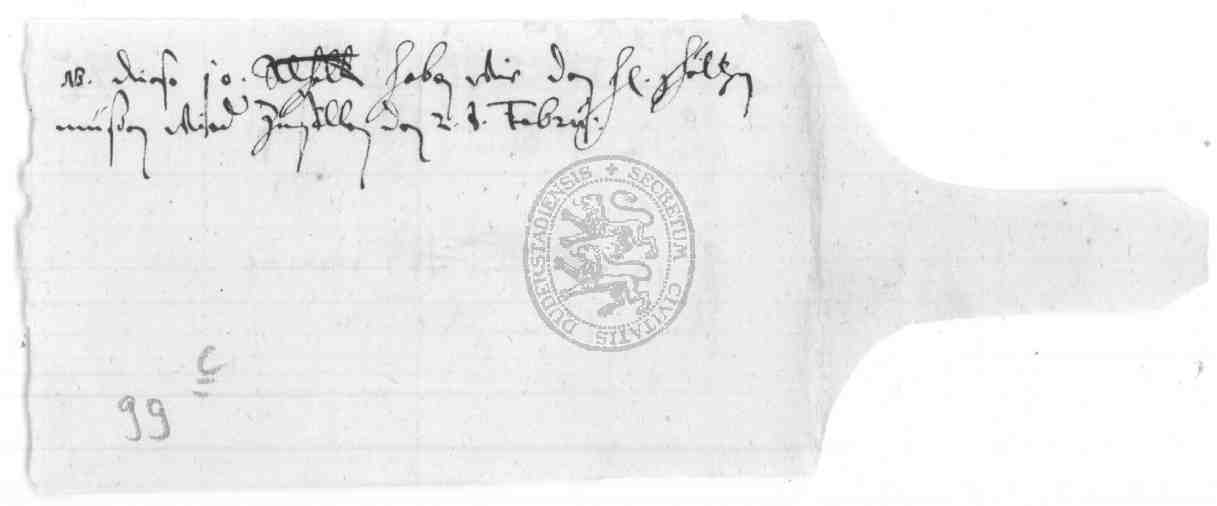 NB. diese 10. haben wir den H.
müßen wied zustellen den 2. t. Febru:
SECRETUM CIVITATIS DUDERSTADIENSIS
C
99